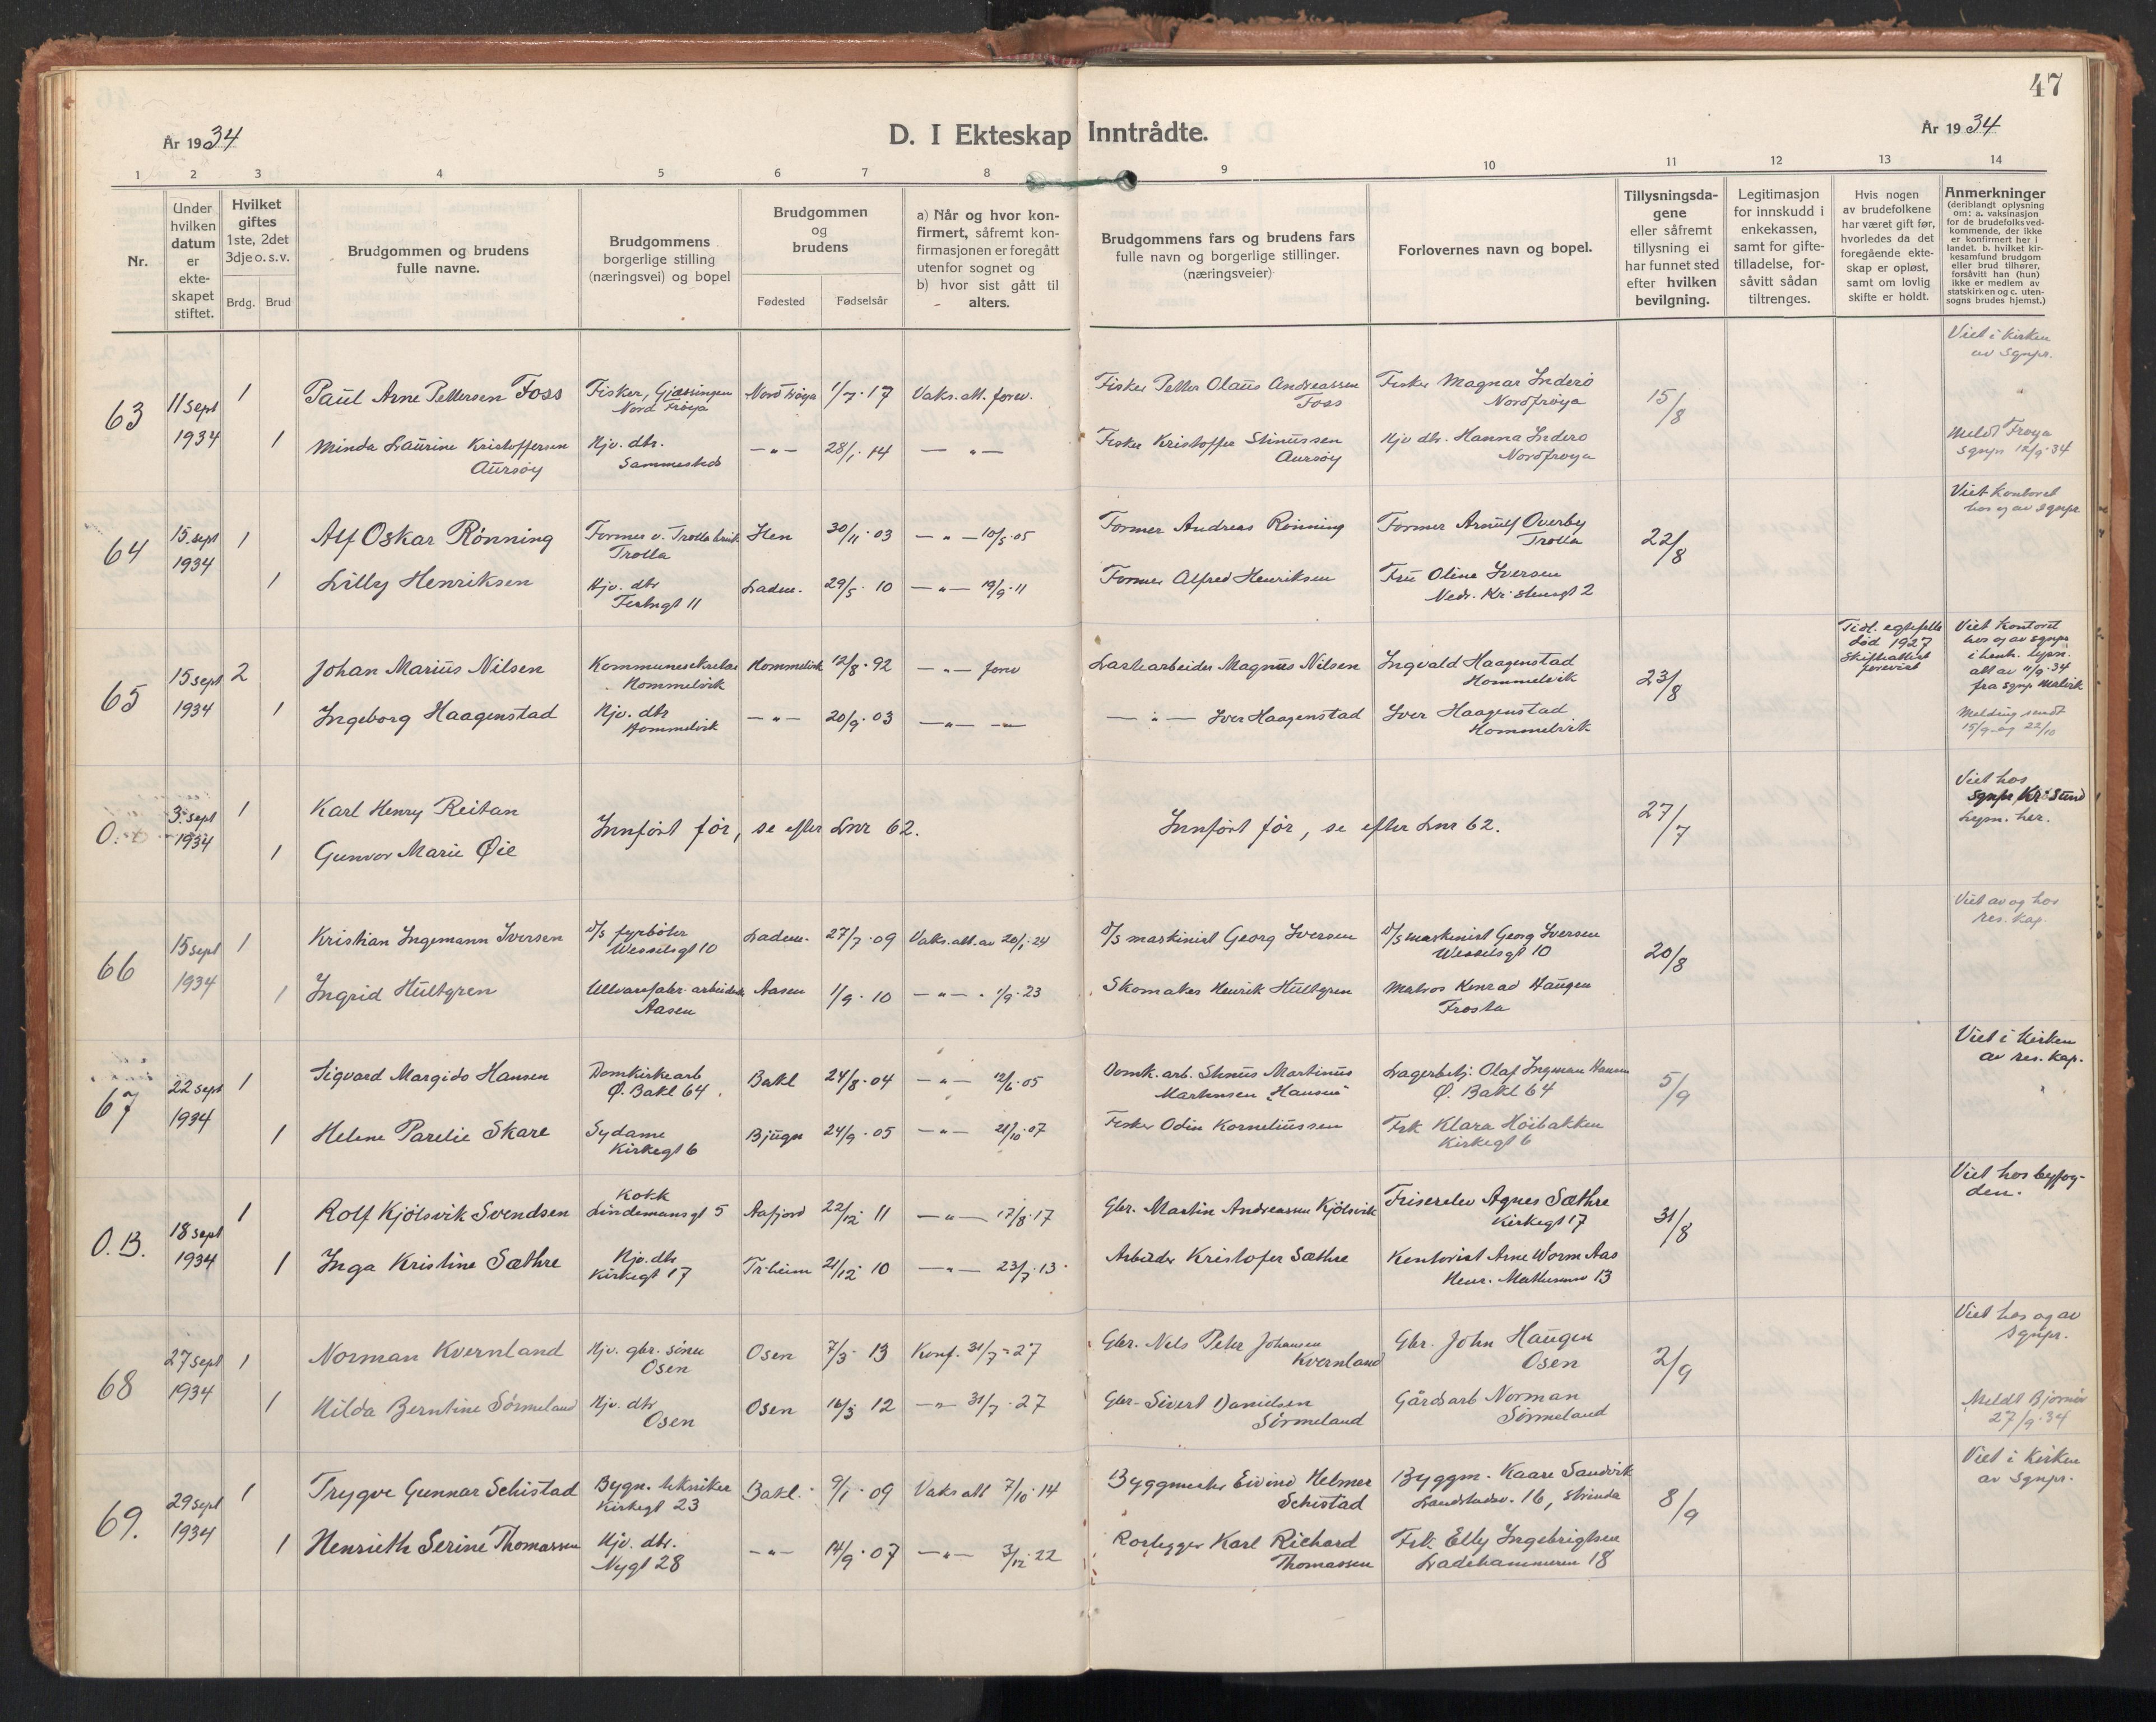 47
År 1934
D. I Ekteskap Inntrådte.
År 1934
1 2 3 4 5 6 7 8 9 10 11 12 13 14
Nr.
Under hvilken datum er ekte-skapet stiftet.
Hvilket giftes 1ste, 2det 3dje o. s. v.
Brdg. Brud
Brudgommen og brudens fulle navne.
Brudgommens borgerlige stilling (næringsvei) og bopel
Brudgommen og brudens
Fødested Fødselsår
a) Når og hvor kon-firmert, såfremt kon-firmasjonen er foregått utenfor sognet og
b) hvor sist gått til alters.
Brudgommens fars og brudens fars fulle navn og borgerlige stillinger. (næringsveier)
Forlovernes navn og bopel.
Tillysningsda-gene eller såfremt tillysning ei har funnet sted efter hvilken bevilgning.
Legitimasjon for innskudd i enkekassen, samt for gifte-tilladelse, for-såvitt sådan tiltrenges.
Hvis nogen av brudefolkene har været gift før, hvorledes da det foregående ekte-skap er opløst, samt om lovlig skifte er holdt.
Anmerkninger (deriblandt oplysning om: a. vaksinasjon for de brudefolksved-kommende, der ikke er konfirmert her i landet. b. hvilket kir-kesamfund brudgom eller brud tilhører, forsåvitt han (hun) ikke er medlem av statskirken og c. uten-sogns brudes hjemst.)
63 11 sept 1934 1 Paul Arne Pettersen Foss Fisker, Gjæsingen Nord Frøya Nord Frøya 1/7·17 Vaks. att. forev. Fisker Petter Olaus Andreassen Foss Fisker Magnar Inderø Nordfrøya 15/8 Viet i kirken av sgnpr.
1 Minda Laurine Kristoffersen Aursøy Hjv. dtr. Sammesteds —"— 28/1·14 —"— Fisker Kristoffer Stinussen Aursøy Hjv dtr. Hanna Inderø Nordfrøya Meldt Frøya sgnpr 12/9·34
64 15. sept 1934 1 Alf Oskar Rønning Former v. Trolla bruk Trolla Hen 30/11·03 —"— 10/5·05 Former Andreas Rønning Former Arnulf Overby Trolla 22/8 Viet kontoret hos og av sgnpr
1 Lilly Henriksen Hjv. dtr Ladem. 29/5·10 —"— 19/9·11 Former Alfred Henriksen Fru Oline Iversen
65 15 sept 1934 2 Johan Marius Nilsen Kommunesekretær Hommelvik Hommelvik 12/8·92 —"— forev Lastearbeider Magnus Nilsen Ingvald Haagenstad Hommelvik 23/8 Tidl. egtefelle død 1927 Skifteattest forevist Viet kontoret hos og av sgnpr i henh. lysn. att av 11/9·34 fra sgnpr Malvik
1 Ingeborg Haagenstad Hjv. dtr Hommelvik —"— 20/9·03 —"— —"— —"— Iver Haagenstad Iver Haagenstad Hommelvik Melding sendt 15/9 og 22/10
0. 3. sept 1934 1 Karl Henry Reitan Innført før, se efter Lnr 62. Innført før, se efter Lnr 62. 27/7 Viet hos sgnpr Kr.Sund
1 Gunvor Marie Øie
66 15 sept 1934 1 Kristian Ingemann Iversen D/S fyrbøter Wesselsgt 10 Ladem. 27/7·09 Vaks. att. av 20/1·24 D/S maskinist Georg Iversen D/S maskinist Georg Iversen Wesselsgt 10 20/8 Viet av og hos res. kap.
1 Ingrid Hultgren Ullvarefabr. arbeiderske Aasen Aasen 1/9·10 —"— 1/9·23 Skomaker Henrik Hultgren Matros Konrad Haugen Frosta
67 22 sept 1934 1 Sigvard Margido Hansen Domkirkearb Ø. Bakl 64 Bakl 24/8·04 —"— 12/6·05 Domk. arb. Stinus Martinus Martinsen "Hansen" Lagerbetj. Olaf Ingman Hansen Ø. Bakl 64 5/9 Viet i kirken av res. kap.
1 Helene Parelie Skare Sydame Kirkegt 6 Bjugn 24/9·05 —"— 21/10·07 Fisker Odin Korneliussen Frk Klara Høibakken Kirkegt 6
0. B. 18 sept 1934 1 Rolf Kjølsvik Svendsen Kokk Lindemansgt 5 Aafjord 22/12 11 —"— 17/8·17 Gbr. Martin Andreassen Kjølsvik Friserelev Agnes Sæthre Kirkegt 17 31/8 Viet hos byfog-den.
1 Inga Kristine Sæthre Hjv. dtr Kirkegt 17 Tr·heim 21/12 10 —"— 23/7·13 Arbeider Kristofer Sæthre Kontorist Arne Worm Aas
68 27 sept 1934 1 Norman Kvernland Hjv. gbr. sønn Osen Osen 7/3 13 Konf. 31/7-27 Gbr. Nels Peter Johansen Kvernland Gbr. John Haugen Osen 2/9 Viet hos og av sgnpr.
1 Hilda Berntine Sørmeland Hjv. dtr Osen Osen 16/3 12 —"— 31/7·27 Gbr. Sivert Danielsen Sørmeland Gårdsarb Norman Sørmeland Meldt Bjørnør 27/9·34
69. 29 sept 1934 1 Trygve Gunnar Schistad Bygn. tekniker Kirkegt 23 Bakl. 9/1·09 Vaks att 7/10·14 Byggmester Eivind Helmer Schistad Byggm. Kaare Sandvik Landstadsv. 16, Strinda 8/9 Viet i kirken av sgnpr.
1 Henrieth Serine Thomassen Hjv. dtr. Nygt 28 —"— 14/9·07 —"— 3/12·22 Rørlegger Karl Richard Thomassen Frk. Elly Ingebrigtsen Ladehammeren 18